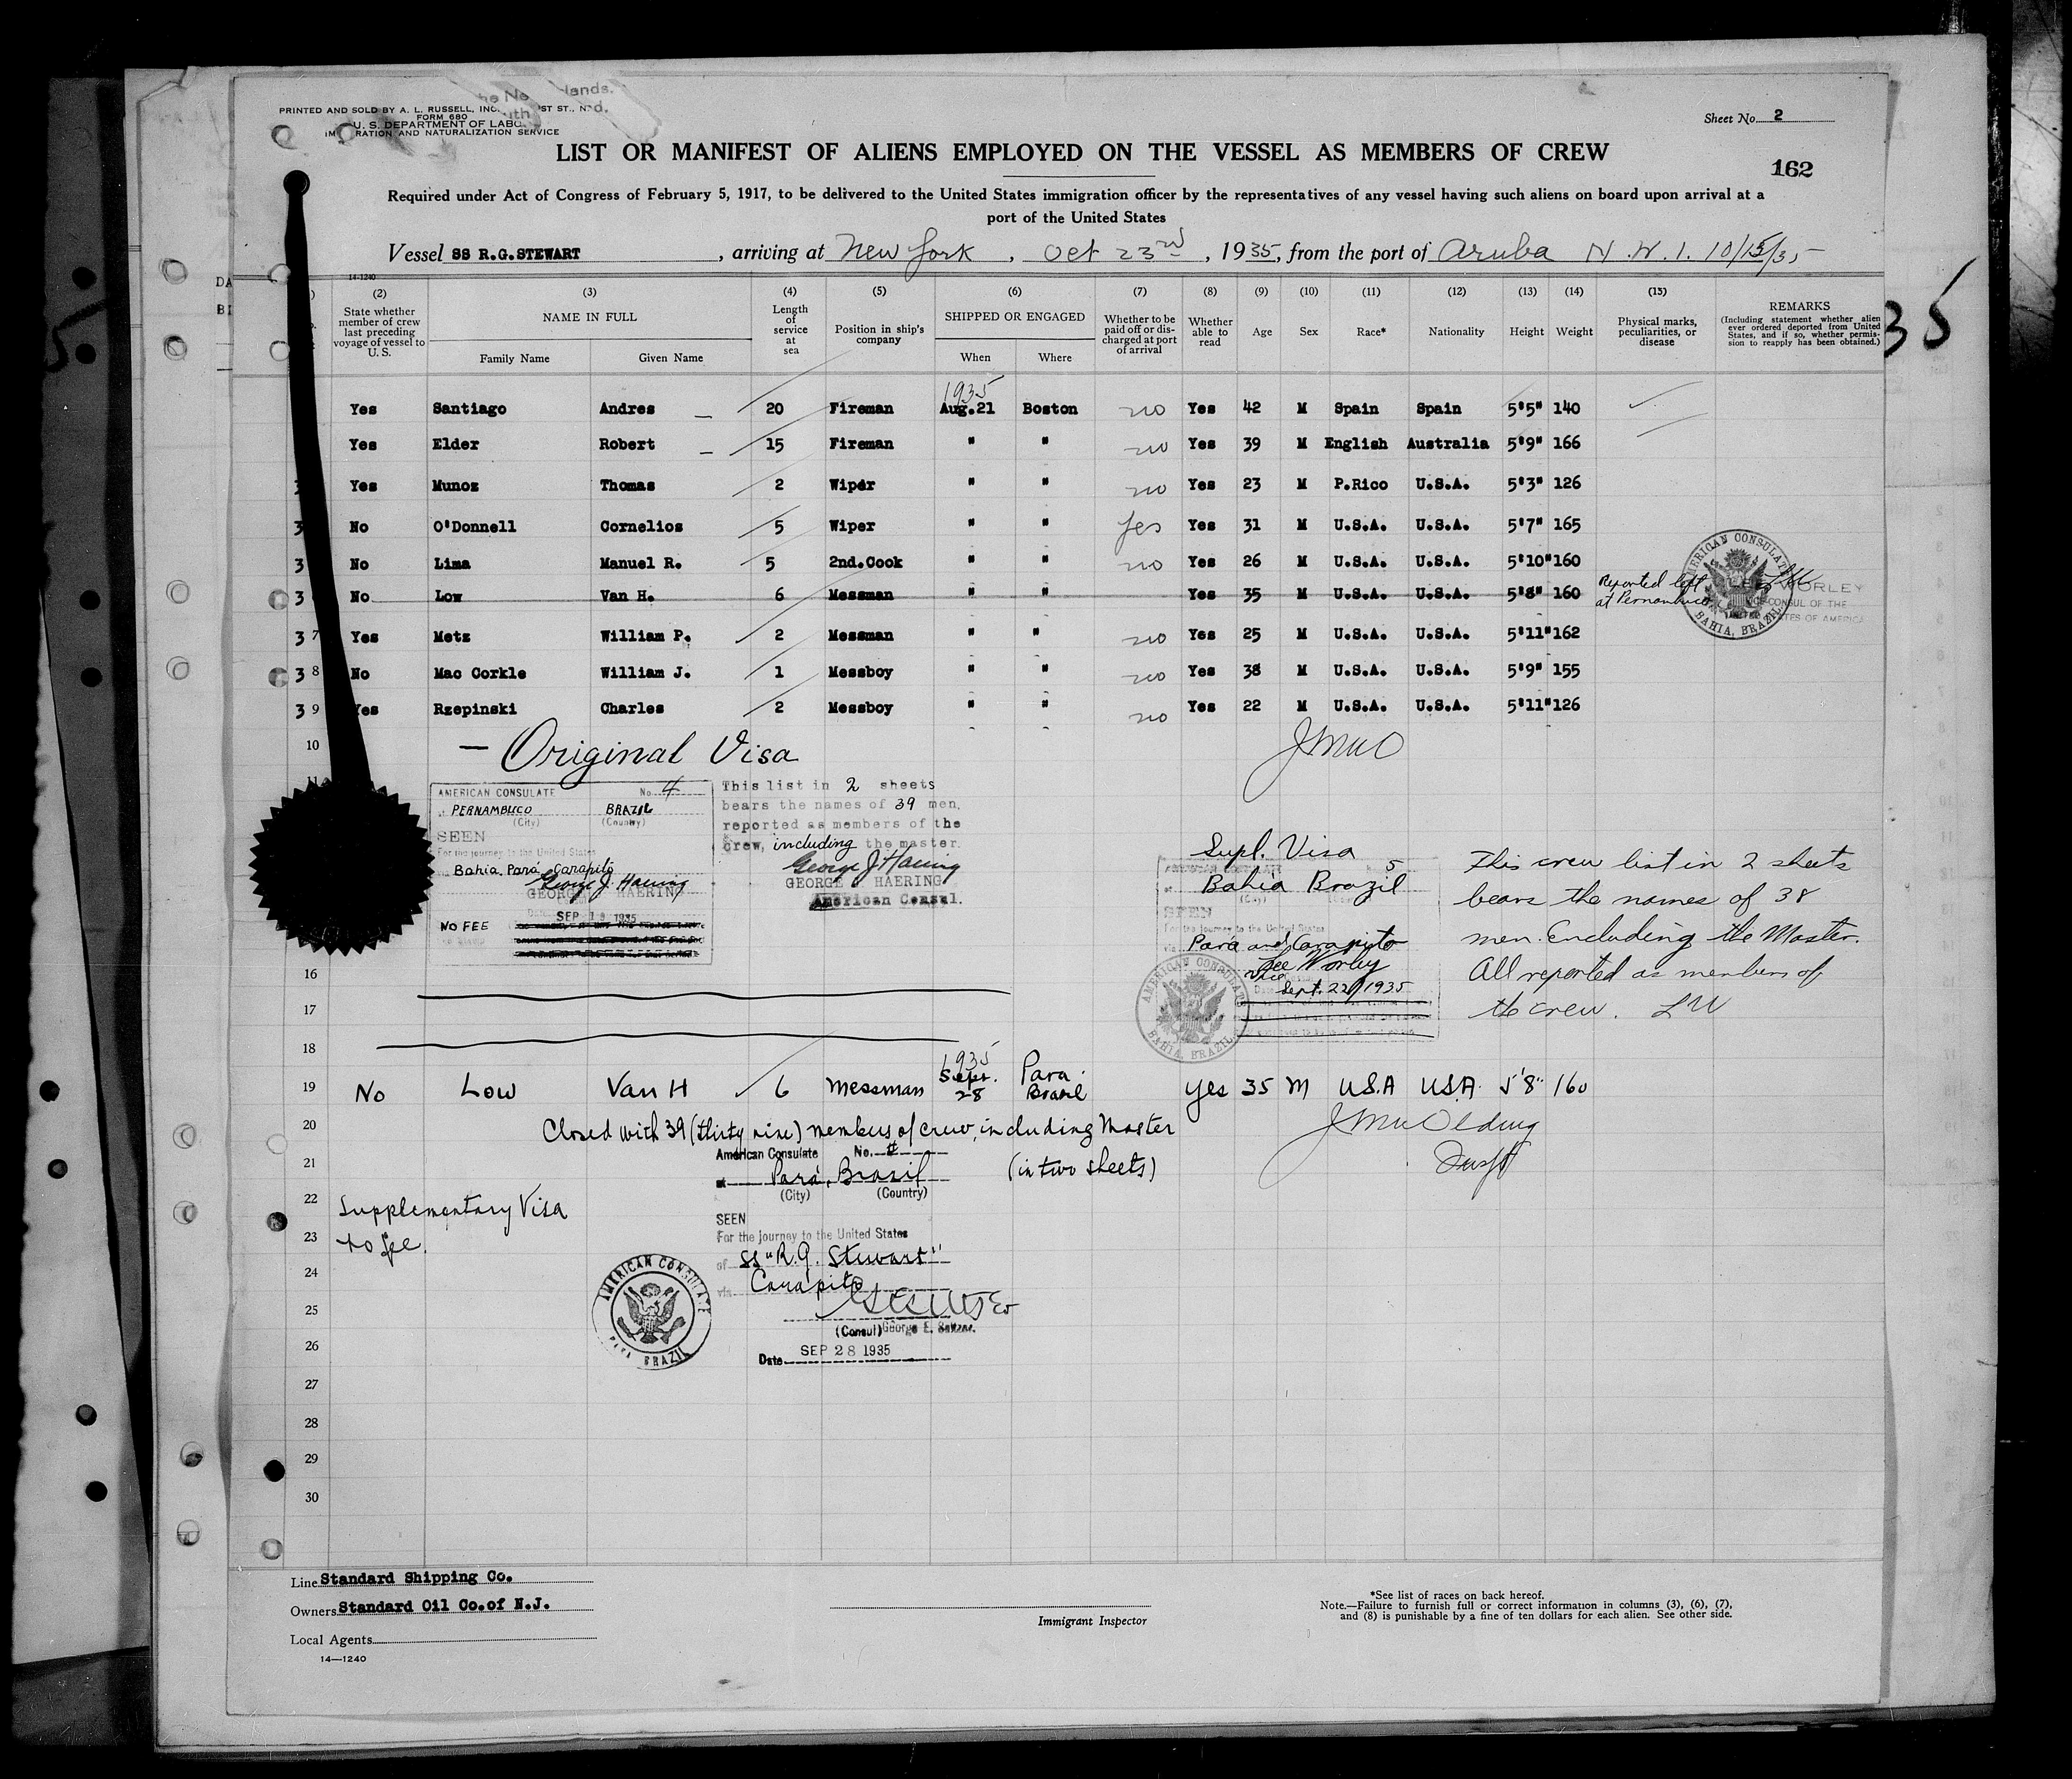 PRINTED AND SOLD BY A. L. RUSSELL, INC.
FORM 680
U. S. DEPARTMENT OF LABOR
IMMIGRATION AND NATURALIZATION SERVICE
Sheet No. 2
LIST OR MANIFEST OF ALIENS EMPLOYED ON THE VESSEL AS MEMBERS OF CREW
162
Required under Act of Congress of February 5, 1917, to be delivered to the United States immigration officer by the representatives of any vessel having such aliens on board upon arrival at a
port of the United States
Vessel SS R.G.STEWART, arriving at New York, Oct 23rd, 1935, from the port of Aruba N.W.I. 10/15/35
14-1240
(2) (3) (4) (5) (6) (7) (8) (9) (10) (11) (12) (13) (14) (15)
State whether member of crew last preceding voyage of vessel to U. S. NAME IN FULL Family Name Given Name Length of service at sea Position in ship's company SHIPPED OR ENGAGED When Where Whether to be paid off or discharged at port of arrival Whether able to read Age Sex Race* Nationality Height Weight Physical marks, peculiarities, or disease REMARKS (Including statement whether alien ever ordered deported from United States, and if so, whether permission to reapply has been obtained.)
35
1935
Yes Santiago Andres — 20 Fireman Aug.21 Boston no Yes 42 M Spain Spain 5'5" 140
Yes Elder Robert — 15 Fireman " " no Yes 39 M English Australia 5'9" 166
3 Yes Munoz Thomas 2 Wiper " " no Yes 23 M P.Rico U.S.A. 5'3" 126
3 No O'Donnell Cornelios 5 Wiper " " Yes Yes 31 M U.S.A. U.S.A. 5'7" 165
3 No Lima Manuel R. 5 2nd.Cook " " no Yes 26 M U.S.A. U.S.A. 5'10" 160
3 No Low Van H. 6 Messman " " Yes 35 M U.S.A. U.S.A. 5'8" 160 Reported left at Pernambuco
AMERICAN CONSULATE BAHIA, BRAZIL
WORLEY
VICE CONSUL OF THE
UNITED STATES OF AMERICA
37 Yes Metz William P. 2 Messman " " no Yes 25 M U.S.A. U.S.A. 5'11" 162
38 No Mac Corkle William J. 1 Messboy " " no Yes 38 M U.S.A. U.S.A. 5'9" 155
39 Yes Rzepinski Charles 2 Messboy " " no Yes 22 M U.S.A. U.S.A. 5'11" 126
10 — Original Visa
11
AMERICAN CONSULATE No. 4
PERNAMBUCO BRAZIL
(City) (Country)
SEEN
For the journey to the United States
Bahia, Pará, Caripito
George J. Haering
GEORGE J HAERING
SEP 19 1935
NO FEE
This list in 2 sheets
bears the names of 39 men,
reported as members of the
crew, including the master.
George J. Haering
GEORGE J HAERING
American Consul.
Supl. Visa
AMERICAN CONSULATE 5
Bahia Brazil
SEEN
For the journey to the United States
via Pará and Caripito
Lee Worley
Vice
Sept. 22, 1935
AMERICAN CONSULATE BAHIA, BRAZIL
This crew list in 2 sheets
bears the names of 38
men. Encluding the Master.
All reported as members of
the crew. LW
16
17
18
1935
19 No Low Van H 6 Messman Sept. 28 Para Brasil Yes 35 M U.S.A U.S.A. 5'8" 160
20 Closed with 39 (thirty nine) members of crew, including Master
(in two sheets)
21
American Consulate No.
at Pará, Brasil
(City) (Country)
22 Supplementary Visa
23 No fee.
SEEN
For the journey to the United States
of SS "R.G. Stewart"
via Caripito
24
25
(Consul) George E. Seltzer.
26
Date SEP 28 1935
AMERICAN CONSULATE PARA BRAZIL
27
28
29
30
Line Standard Shipping Co.
Owners Standard Oil Co.of N.J.
Local Agents
14—1240
Immigrant Inspector
*See list of races on back hereof.
Note.—Failure to furnish full or correct information in columns (3), (6), (7),
and (8) is punishable by a fine of ten dollars for each alien. See other side.